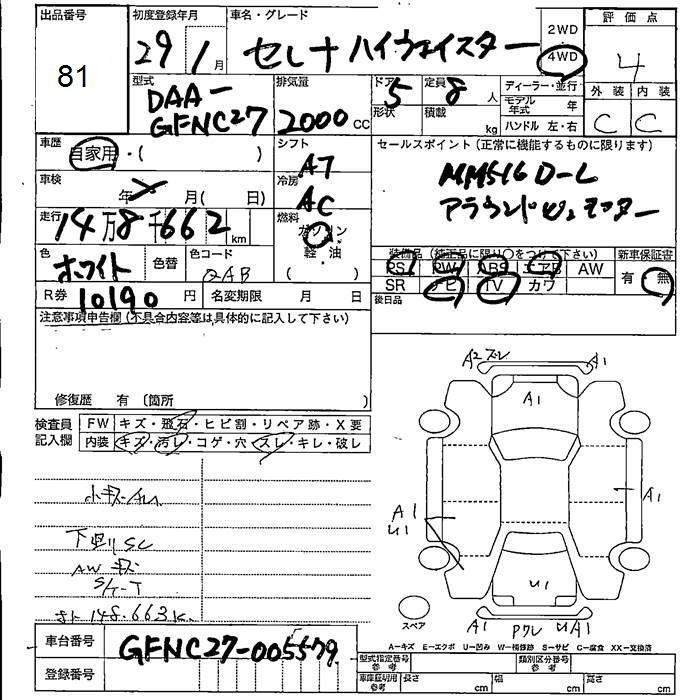 出品番号
81
初度登録年月
29 1月
車名・グレード
セレナ ハイウェイスター
2WD
4WD
評価点
4
型式
DAA-
GFNC27
排気量
2000 CC
ドア
5
形状
定員
8 人
積載
kg
ディーラー・並行
モデル年式 年
ハンドル 左・右
外装
内装
C
C
車歴
自家用・( )
シフト
AT
セールスポイント(正常に機能するものに限ります)
MM516D-L
アラウンドビューモニター
車検
年 月( 日)
冷房
AC
走行
14万8千662km
燃料
ガソリン
軽・油
( )
色
ホワイト
色替
色コード
QAB
装備品(純正品に限り〇をつけて下さい)
新車保証書
PS PW ABS エアB AW
有 無
SR ナビ TV カワ
後日品
R券
10190円
名変期限 月 日
注意事項申告欄(不具合内容等は具体的に記入して下さい)
修復歴 有〔箇所 〕
検査員
記入欄
FW キズ・飛石・ヒビ割・リペア跡・X要
内装 キズ・汚レ・コゲ・穴・スレ・キレ・破レ
下廻りSC
AW
S/T-T
148.663K
A2 ズレ
A1
A1
A1
A1
U1
U1
A1
UA1
スペア
A=キズ E=エクボ U=凹み W=補修跡 S=サビ C=腐食 XX=交換済
車台番号
GFNC27-005579
登録番号
型式指定番号
参考
類別区分番号
参考
車庫証明用
参考
長さ cm
幅 cm
高さ cm